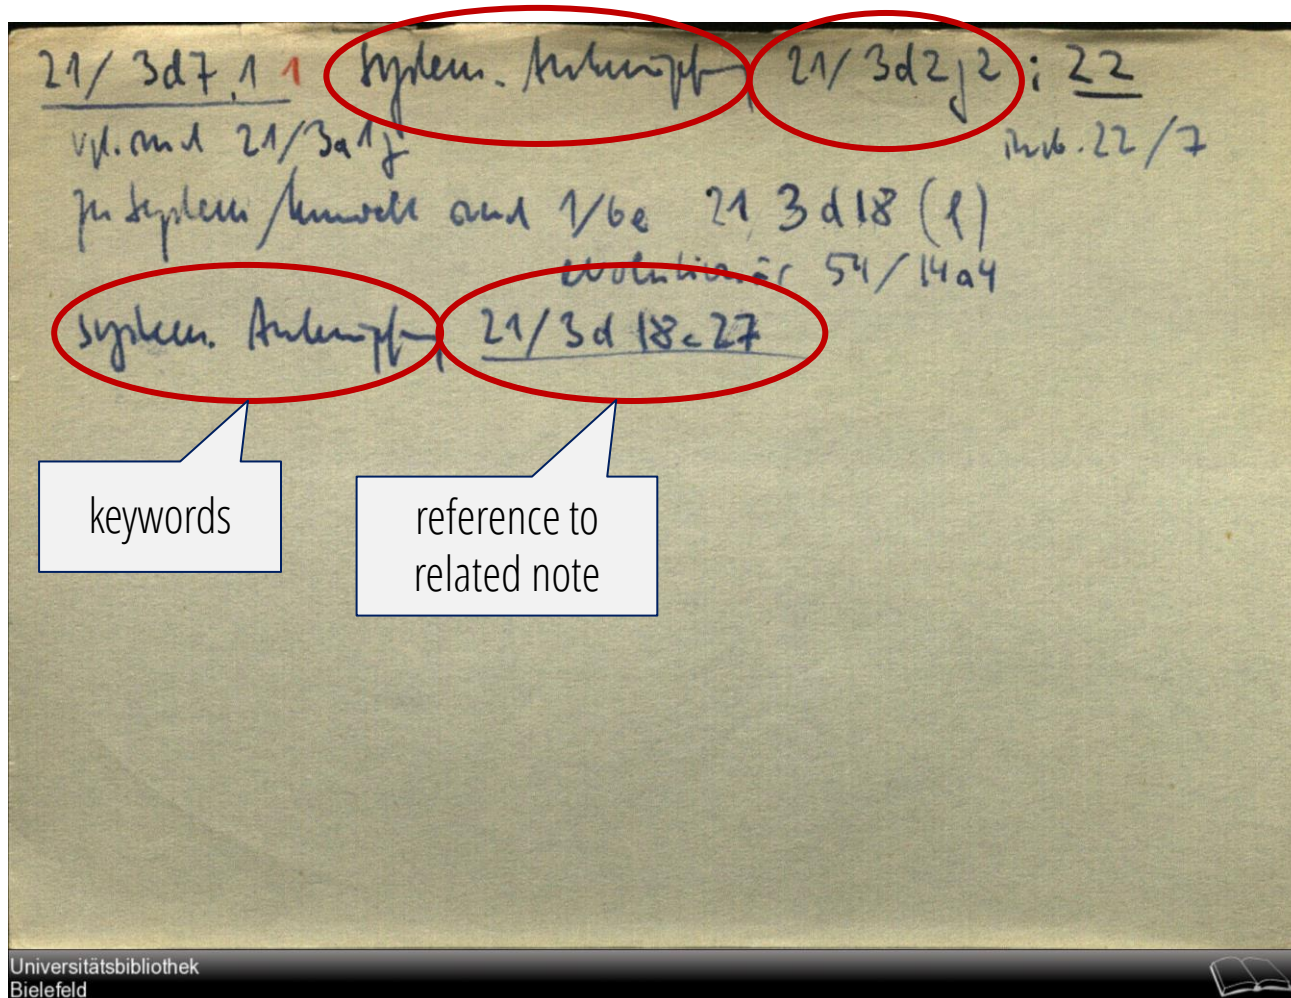 21/ 3d7,1 1 System. Anknüpfung 21/3d2j2 ; 22
vgl. auch 21/3a1j insb. 22/7
zu System/Umwelt auch 1/6e 21 3d18 (f)
evolutionär 54/14a4
system. Anknüpfung 21/3d 18c27
keywords
reference to
related note
Universitätsbibliothek
Bielefeld